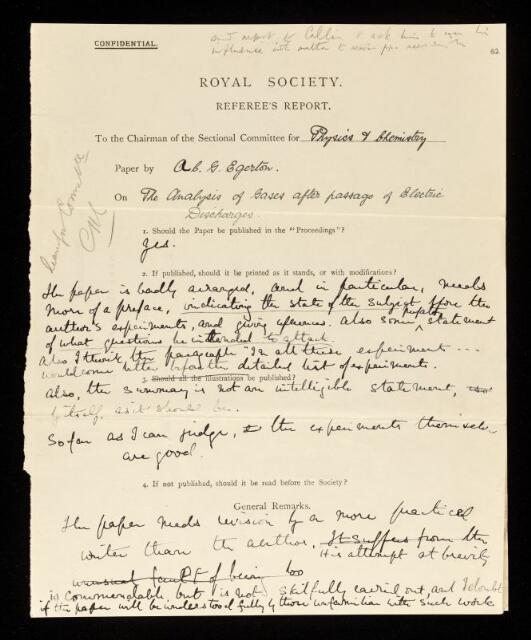 CONFIDENTIAL.
and report to Collie & ask him to use his
influence with author to revise per
62
ROYAL SOCIETY.
REFEREE'S REPORT.
To the Chairman of the Sectional Committee for Physics & Chemistry
Paper by A. C. G. Egerton.
On The Analysis of Gases after passage of Electric
Discharges.
1. Should the Paper be published in the "Proceedings"?
Yes.
2. If published, should it be printed as it stands, or with modifications?
The paper is badly arranged, and in particular, needs
more of a preface, indicating the state of the subject before the
author's experiments, and giving references. Also some prefatory statement
of what questions he intended to attack.
Also I think the paragraph "In all these experiments ...
would come better before the detailed list of experiments.
3. Should all the illustrations be published?
Also, the summary is not an intelligible statement,
by itself, as it should be.
So far as I can judge, the experiments themselves
are good.
4. If not published, should it be read before the Society?
General Remarks.
The paper needs revision by a more practical
writer than the author. It suffers from the
His attempt at brevity
unusual fault of being too
is commendable but is not skilfully carried out, and I doubt
if the paper will be understood fully by those unfamiliar with such work